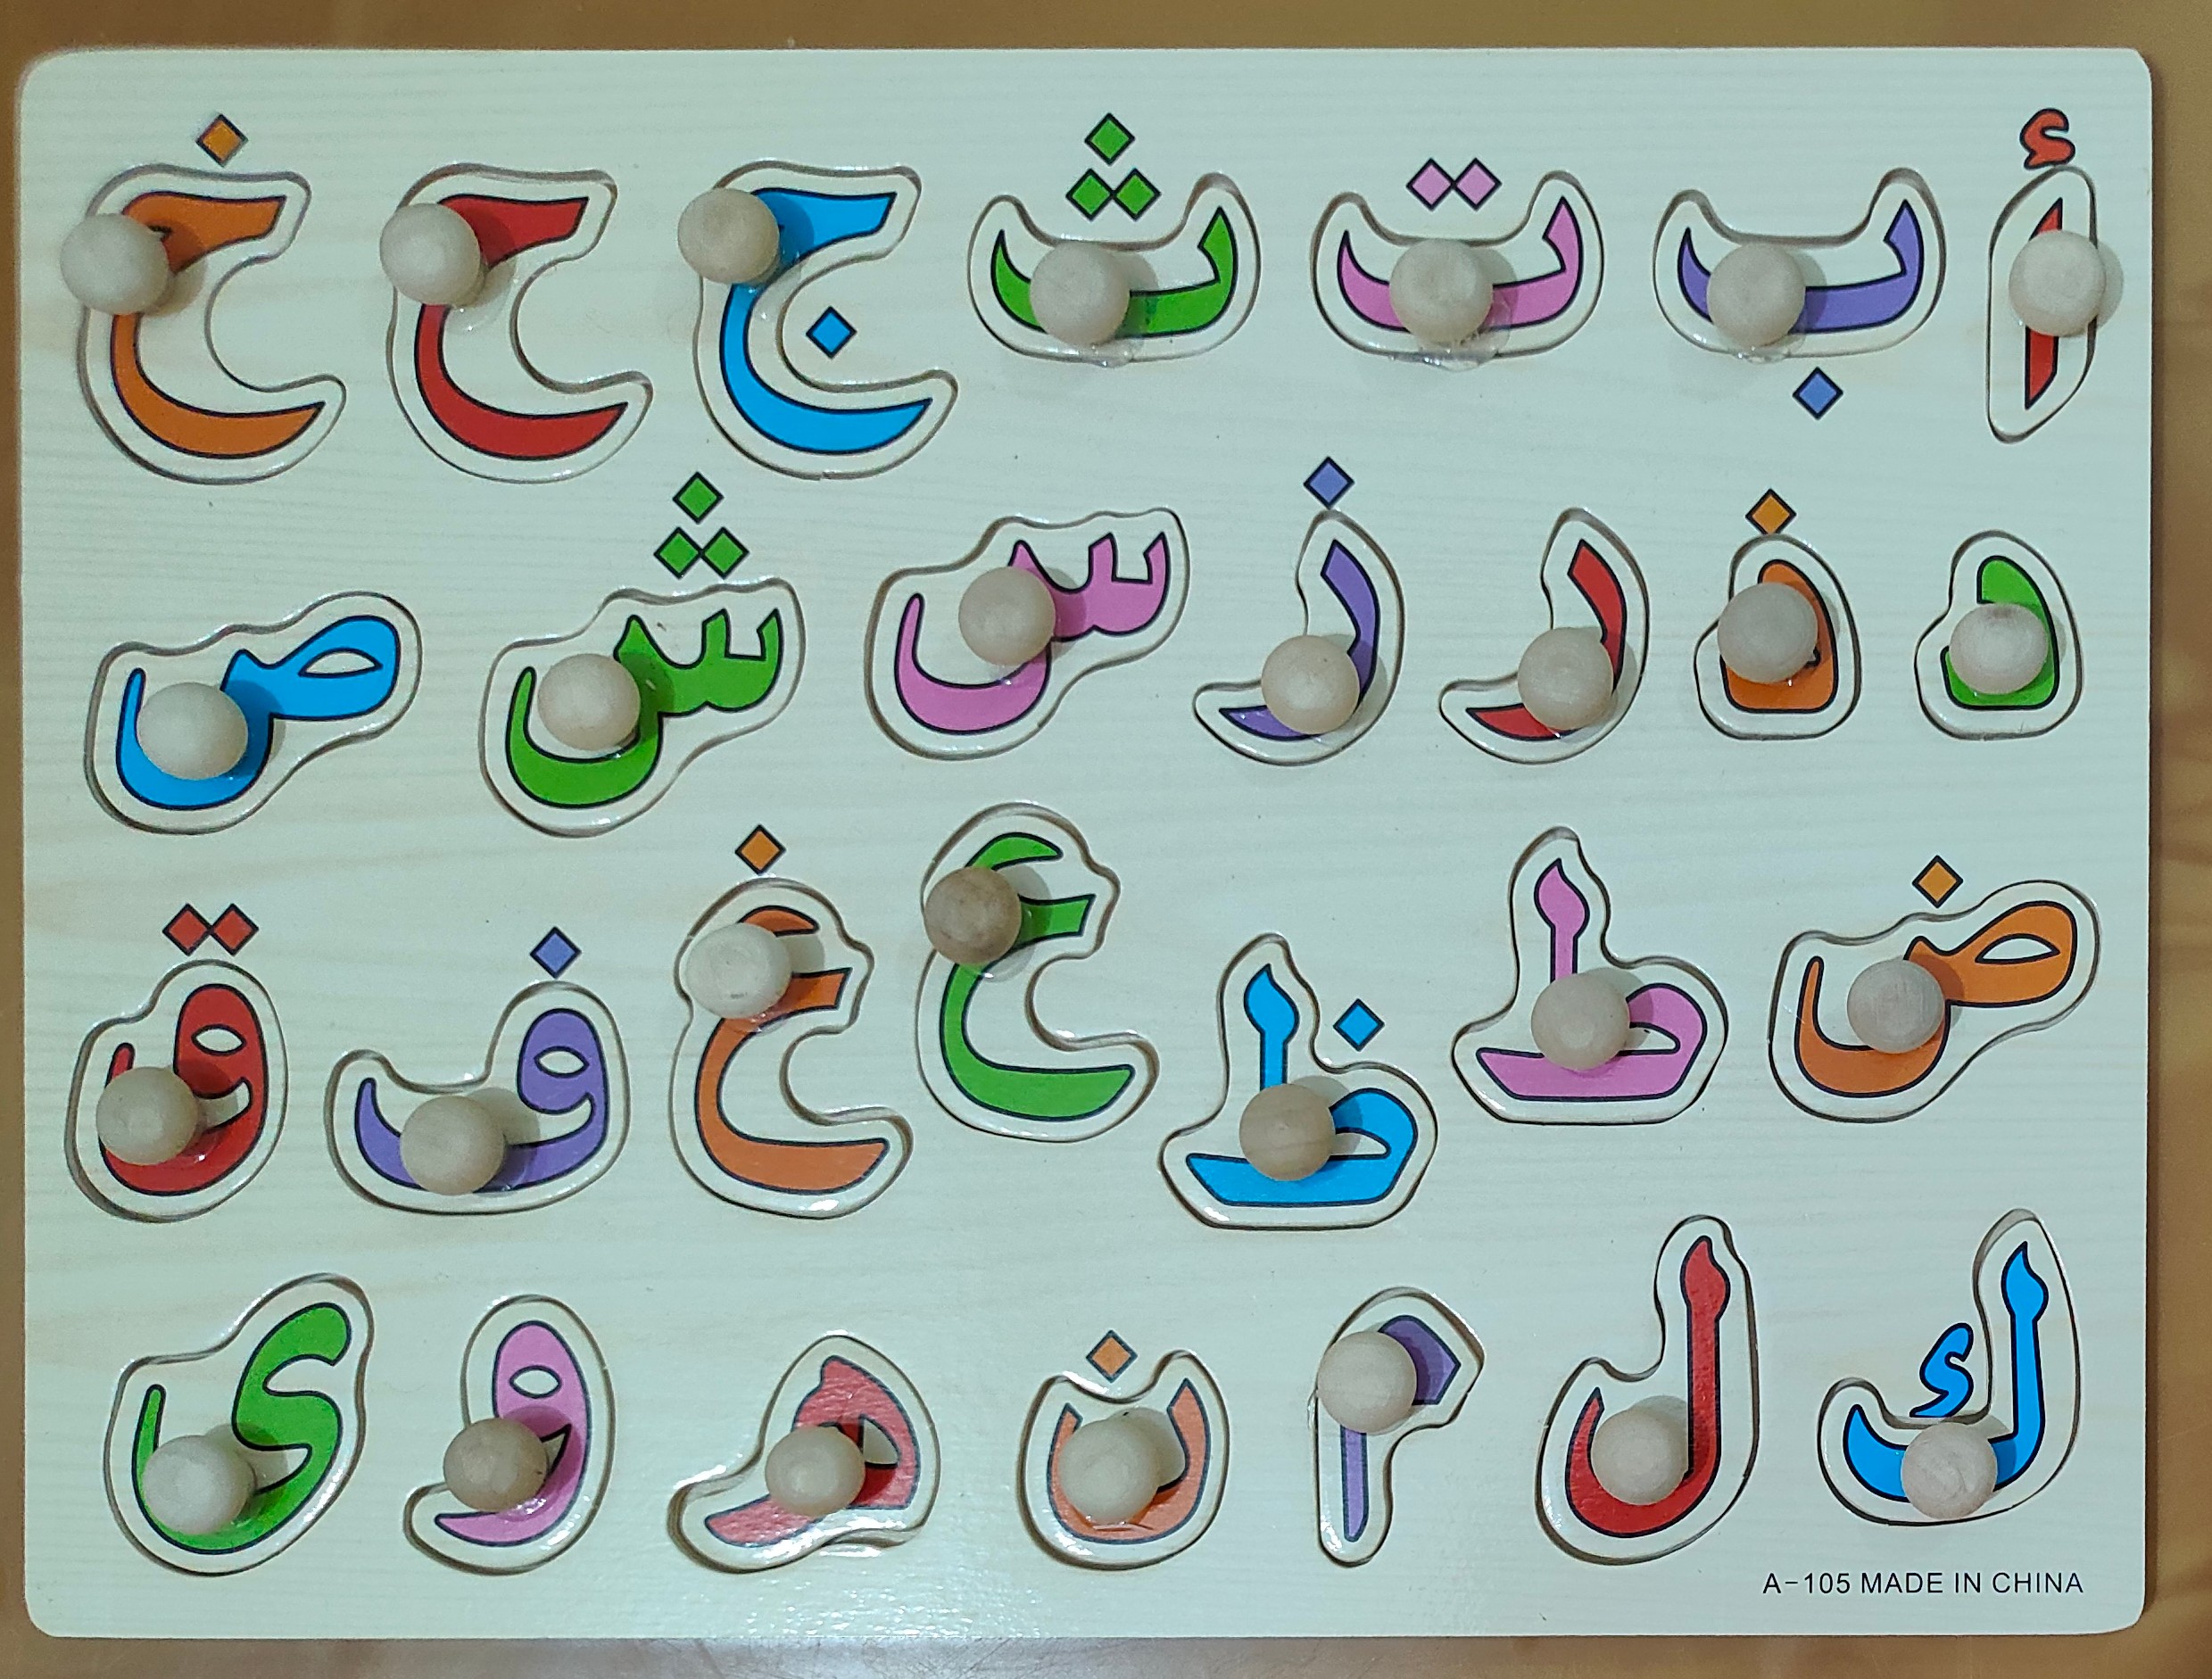 أ ب ت ث ج ح خ
د ذ ر ز س ش ص
ض ط ظ ع غ ف ق
ك ل م ن ه و ى
A-105 MADE IN CHINA